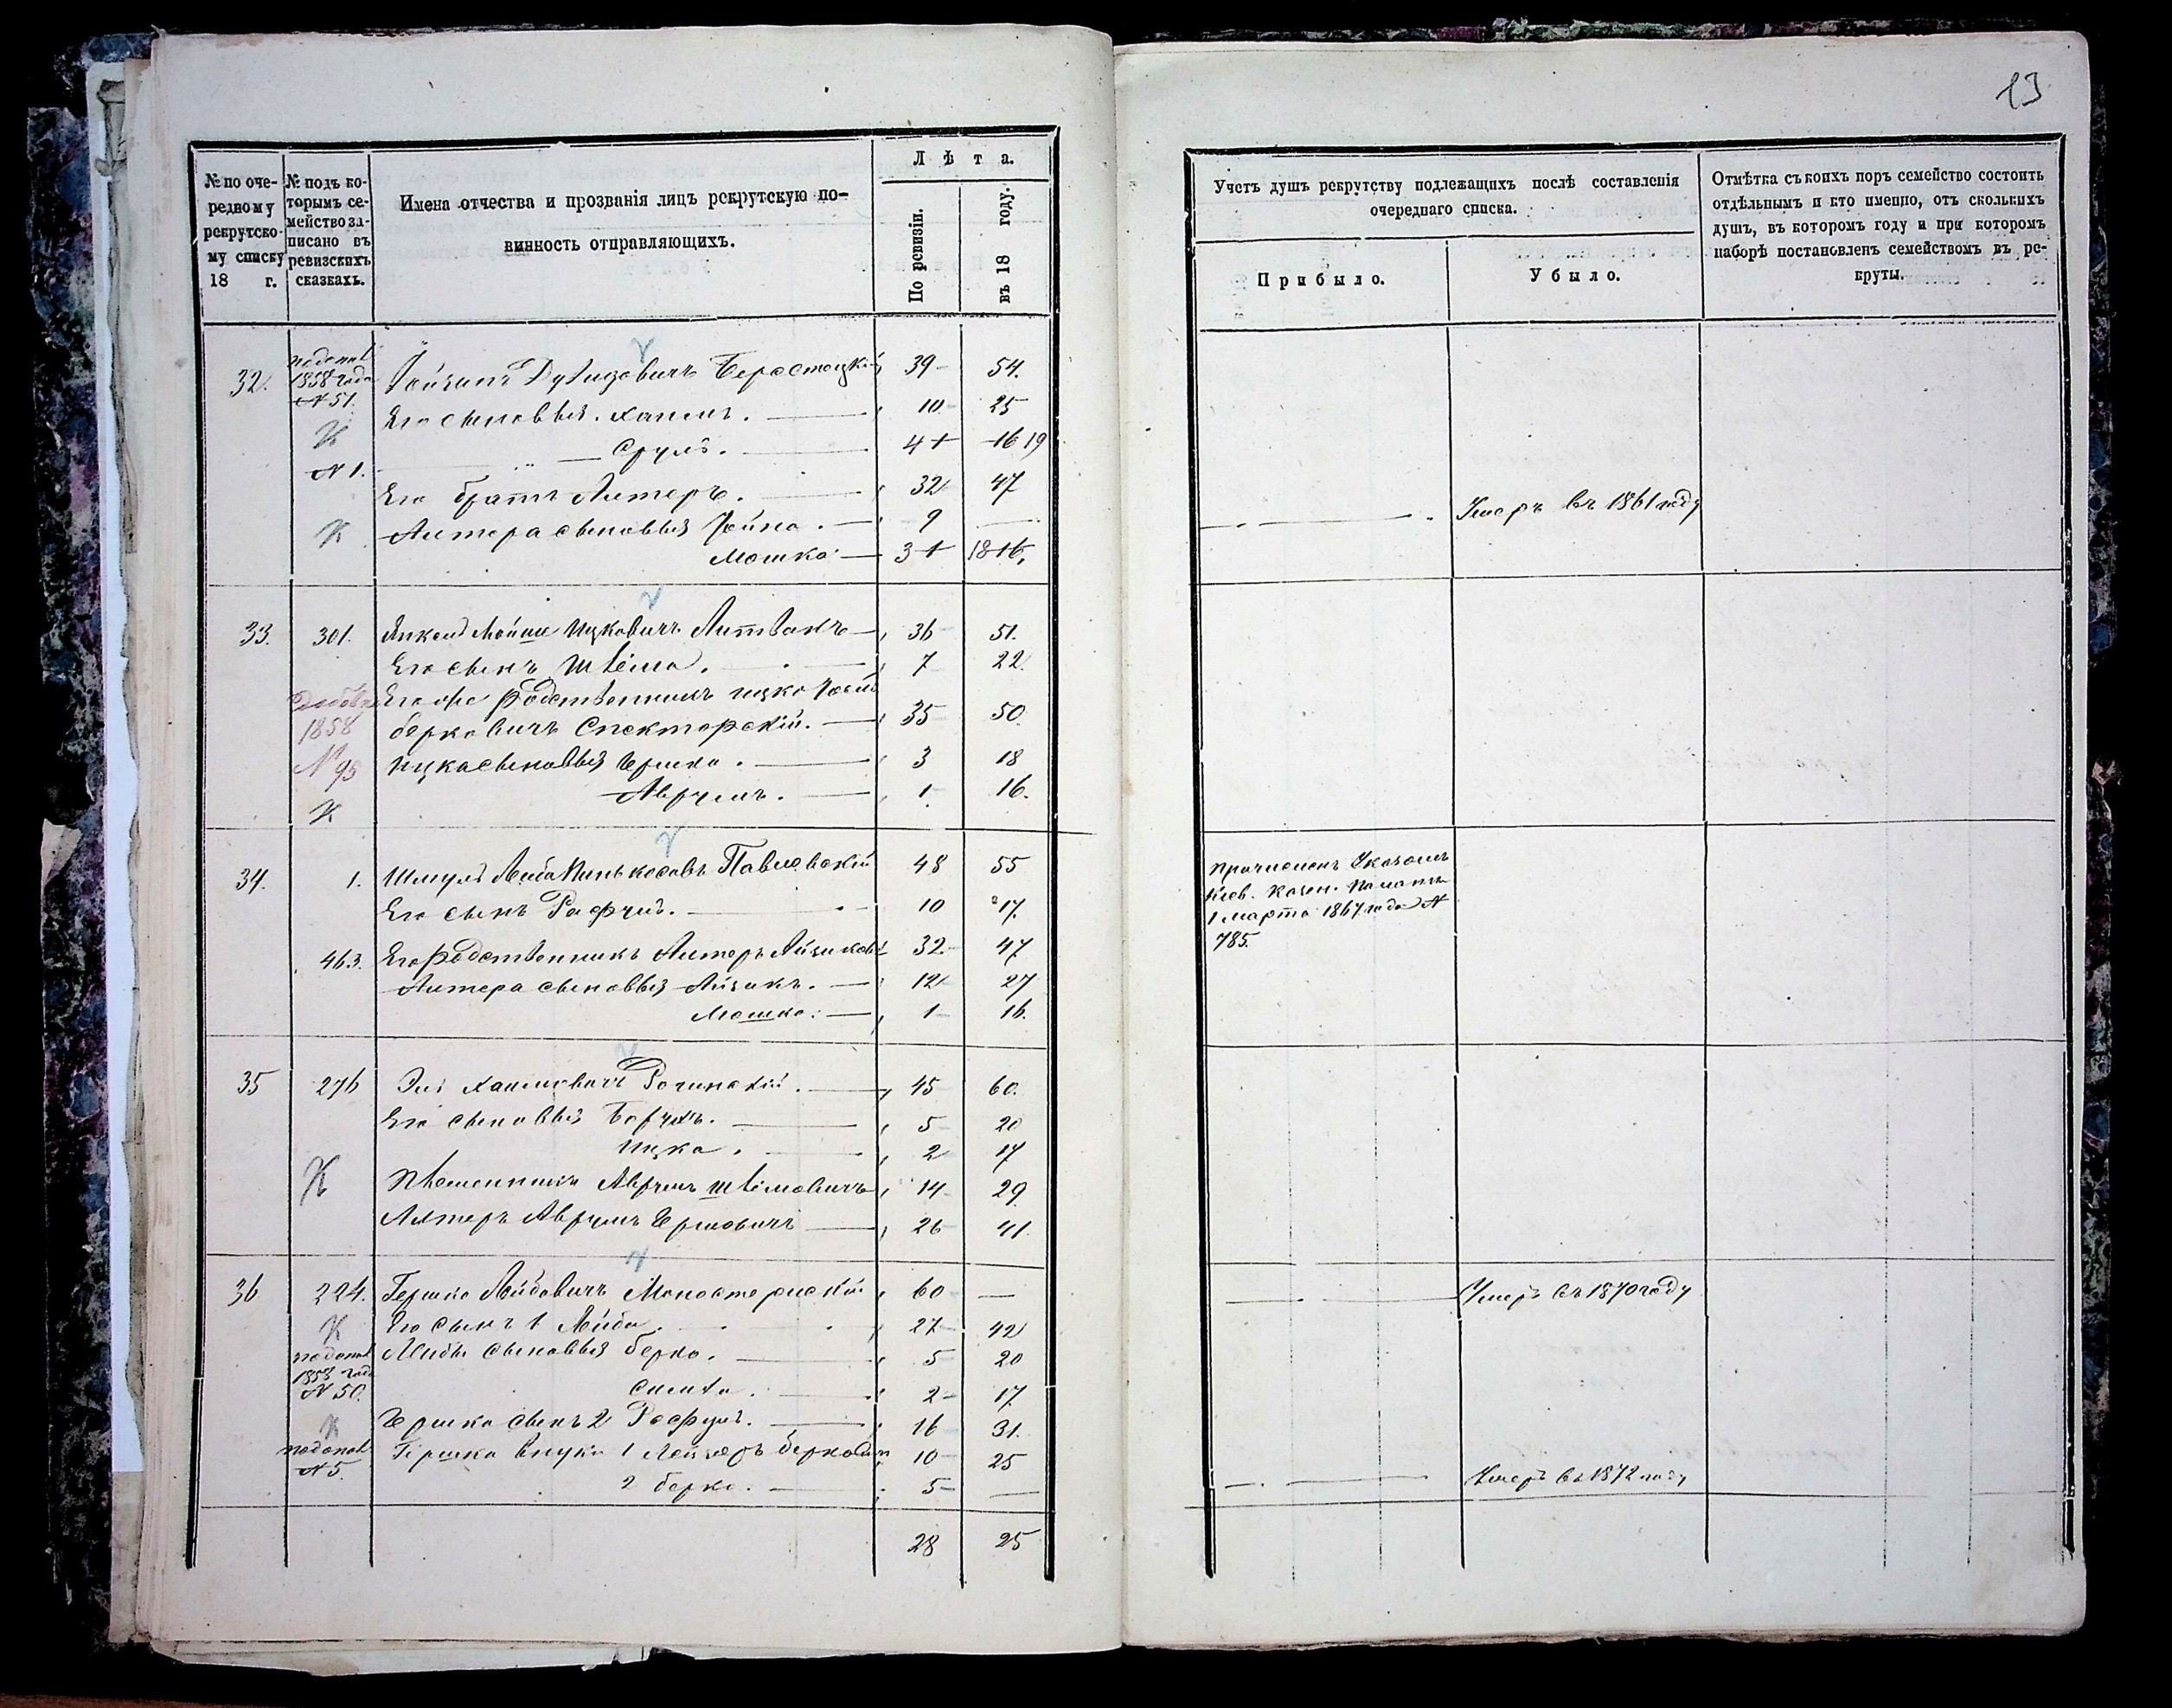 13
№ по оче-
редному
рекрутско-
му списку
18 г.
№ подъ ко-
торымъ се-
мейство за-
писано въ
ревизскихъ
сказкахъ.
Имена отчества и прозванія лицъ рекрутскую по-
винность отправляющихъ.
Лѣта.
По ревизіи.
въ 18 году.
32. 1858 года Берестецкій 39 54.
№ 51.
Его сыновья. Хаимъ. 10 25
К
Сруль. 4 16 19
№ 1.
Его братъ Литеръ. 32 47
К Литера сыновья Іойна. 9 —
Мошко 3 18 16,
33. 301. Янкель Мойше Ицковичъ Литвакъ 36 51.
Его сынъ 7 22.
Его же родственникъ Ицко
1858 Берковичъ Спекторскій. 35 50.
№ 95 Ицка сыновья Гершко. 3 18
Аврумъ. 1 16.
К
34. 1. Шмуль Лейба Пиньковъ Павловскій 48 55
Его сынъ Рафулъ. 10 17.
463. Его родственникъ Литеръ Айзиков 32 47
Литера сыновья Айзикъ. 12 27
Мошко. 1 16.
35 276 Эль Хаимовичъ 45 60.
Его сыновья Борухъ. 5 20
Ицко. 2 17
К Племенникъ Аврумъ 14 29.
Литеръ Аврумъ Гершовичъ 26 41.
36 224. Гершко Лейбовичъ Монастырскій 60 —
К Его сынъ 1 Лейба. 27 42
Лейбы сыновья Берко. 5 20
1858 года
№ 50. 2 17.
К Гершка сынъ 2 Рафулъ. 16 31.
№ 5. Гершка внуки 1 Лейзеръ Берковичъ 10 25
2 Берко. 5 —
28 25
Учетъ душъ рекрутству подлежащихъ послѣ составленія
очереднаго списка.
Прибыло.
Убыло.
Отмѣтка съ коихъ поръ семейство состоитъ
отдѣльнымъ и кто именно, отъ сколькихъ
душъ, въ которомъ году и при которомъ
наборѣ постановленъ семействомъ въ ре-
круты.
Умеръ въ 1861 году
Причисленъ Указомъ
Кіев. Казен. Палаты
1 марта 1867 года №
785.
Умеръ въ 1870 году
Умеръ въ 1872 году